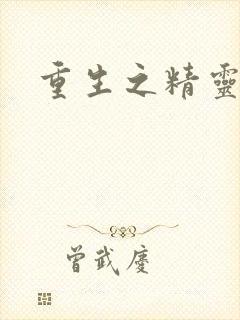 重生之精靈
曾武慶